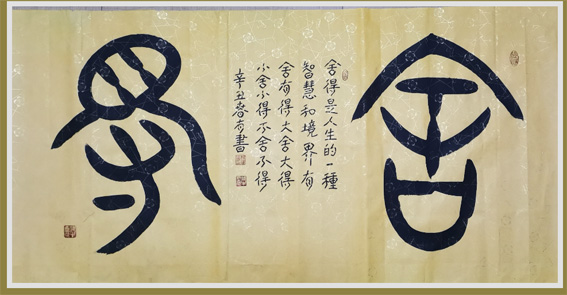 舍
得
舍得是人生的一種
智慧和境界有
舍有得大舍大得
小舍小得不舍不得
辛丑春書